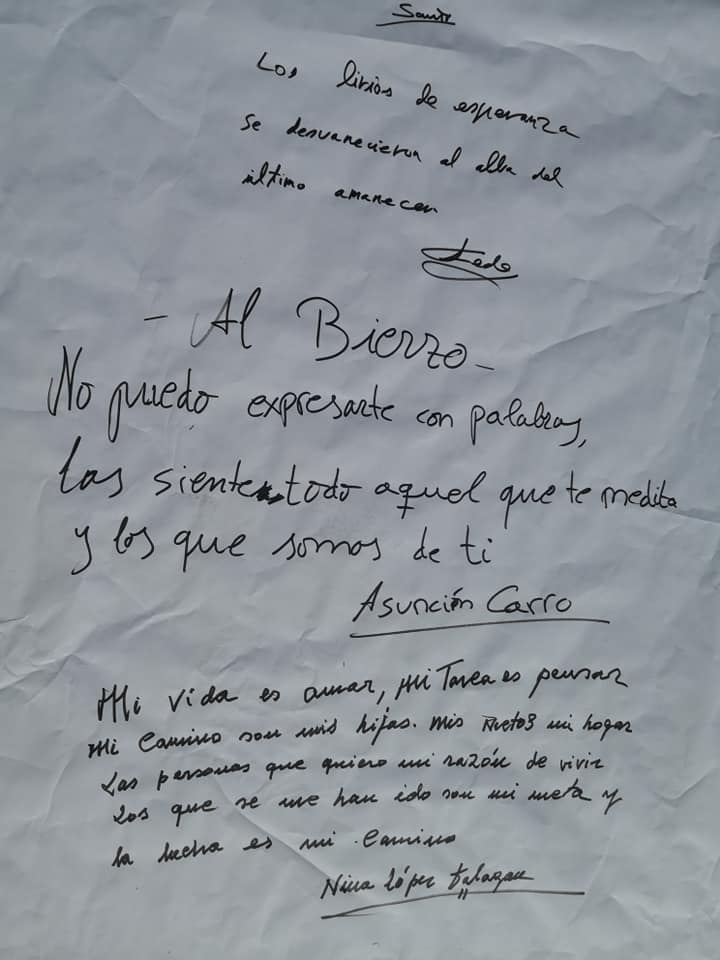 Los lirios de esperanza
se desvanecieron al alba del
último amanecer
- Al Bierzo -
No puedo expresarte con palabras,
las siente todo aquel que te medita
y los que somos de ti
Asunción Carro
Mi vida es amar, mi Tarea es pensar
Mi Camino son mis hijas. Mis Nietos mi hogar
Las personas que quiero mi razón de vivir
Los que se me han ido son mi meta y
la lucha es mi Camino
Nina López